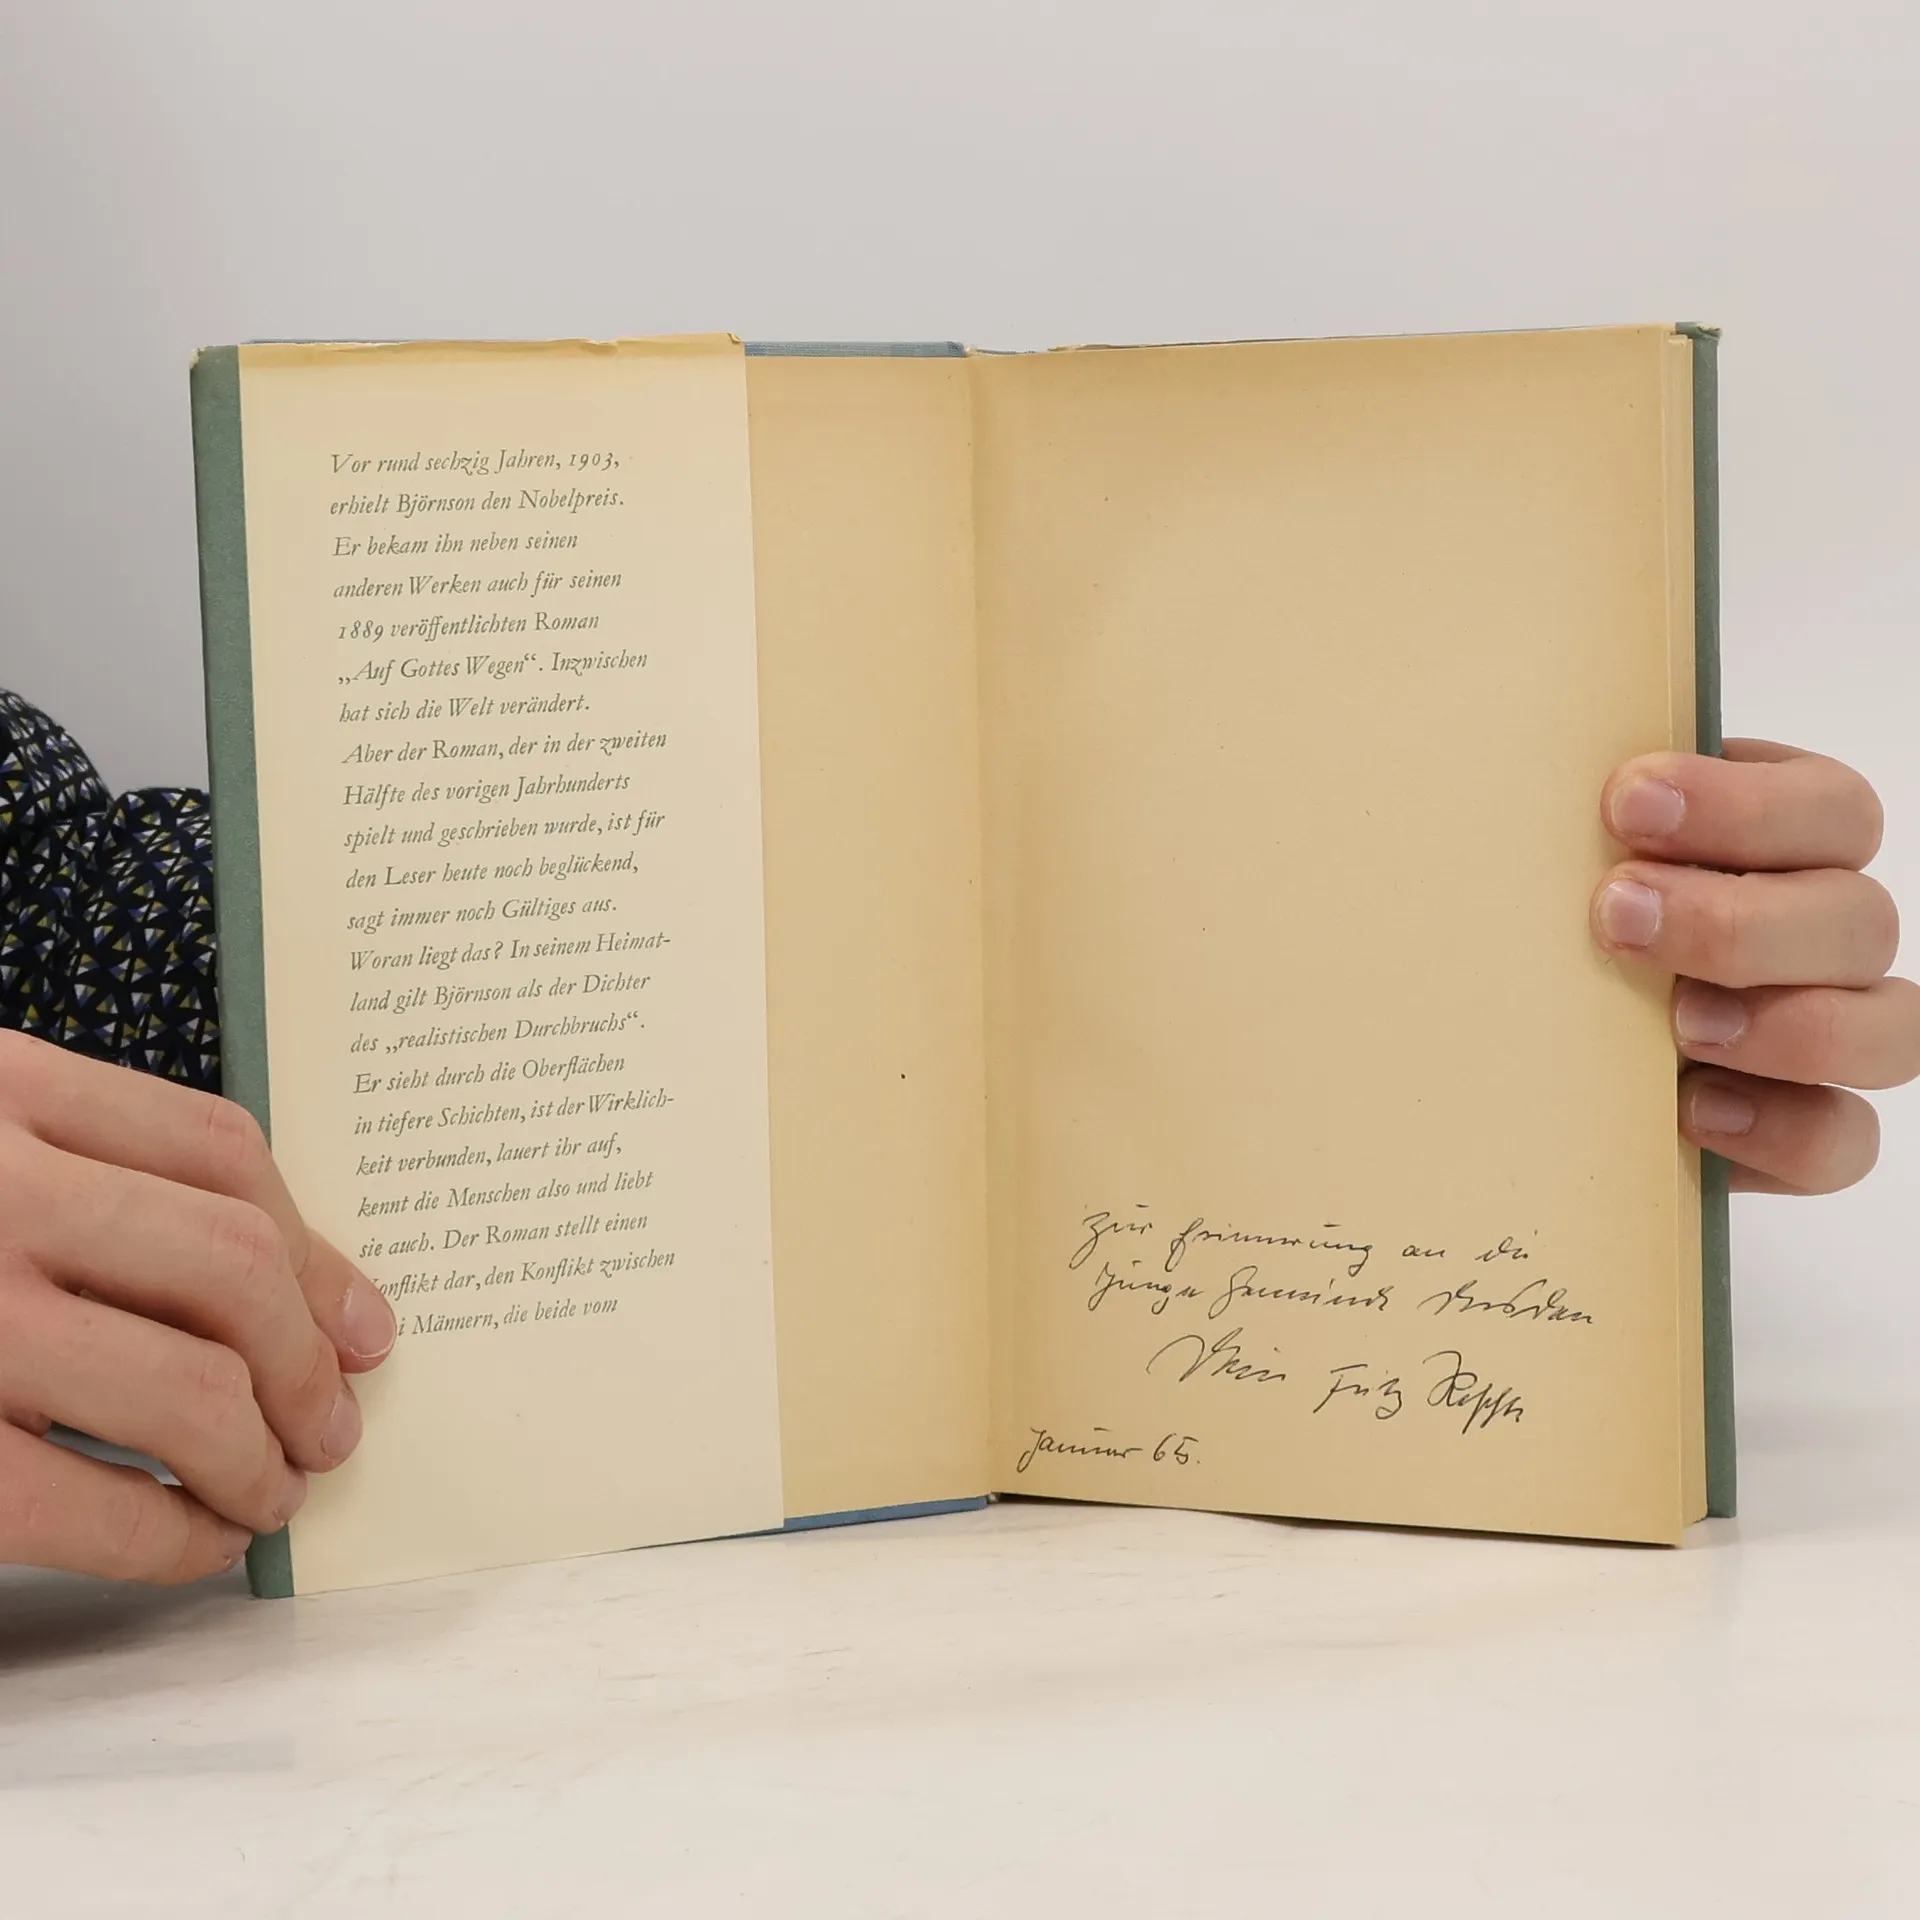 Vor rund sechzig Jahren, 1903,
erhielt Björnson den Nobelpreis.
Er bekam ihn neben seinen
anderen Werken auch für seinen
1889 veröffentlichten Roman
„Auf Gottes Wegen“. Inzwischen
hat sich die Welt verändert.
Aber der Roman, der in der zweiten
Hälfte des vorigen Jahrhunderts
spielt und geschrieben wurde, ist für
den Leser heute noch beglückend,
sagt immer noch Gültiges aus.
Woran liegt das? In seinem Heimat-
land gilt Björnson als der Dichter
des „realistischen Durchbruchs“.
Er sieht durch die Oberflächen
in tiefere Schichten, ist der Wirklich-
keit verbunden, lauert ihr auf,
kennt die Menschen also und liebt
sie auch. Der Roman stellt einen
Konflikt dar, den Konflikt zwischen
Männern, die beide vom
Zur Erinnerung an die
Junge Gemeinde Dresden
Fritz
Januar 65.